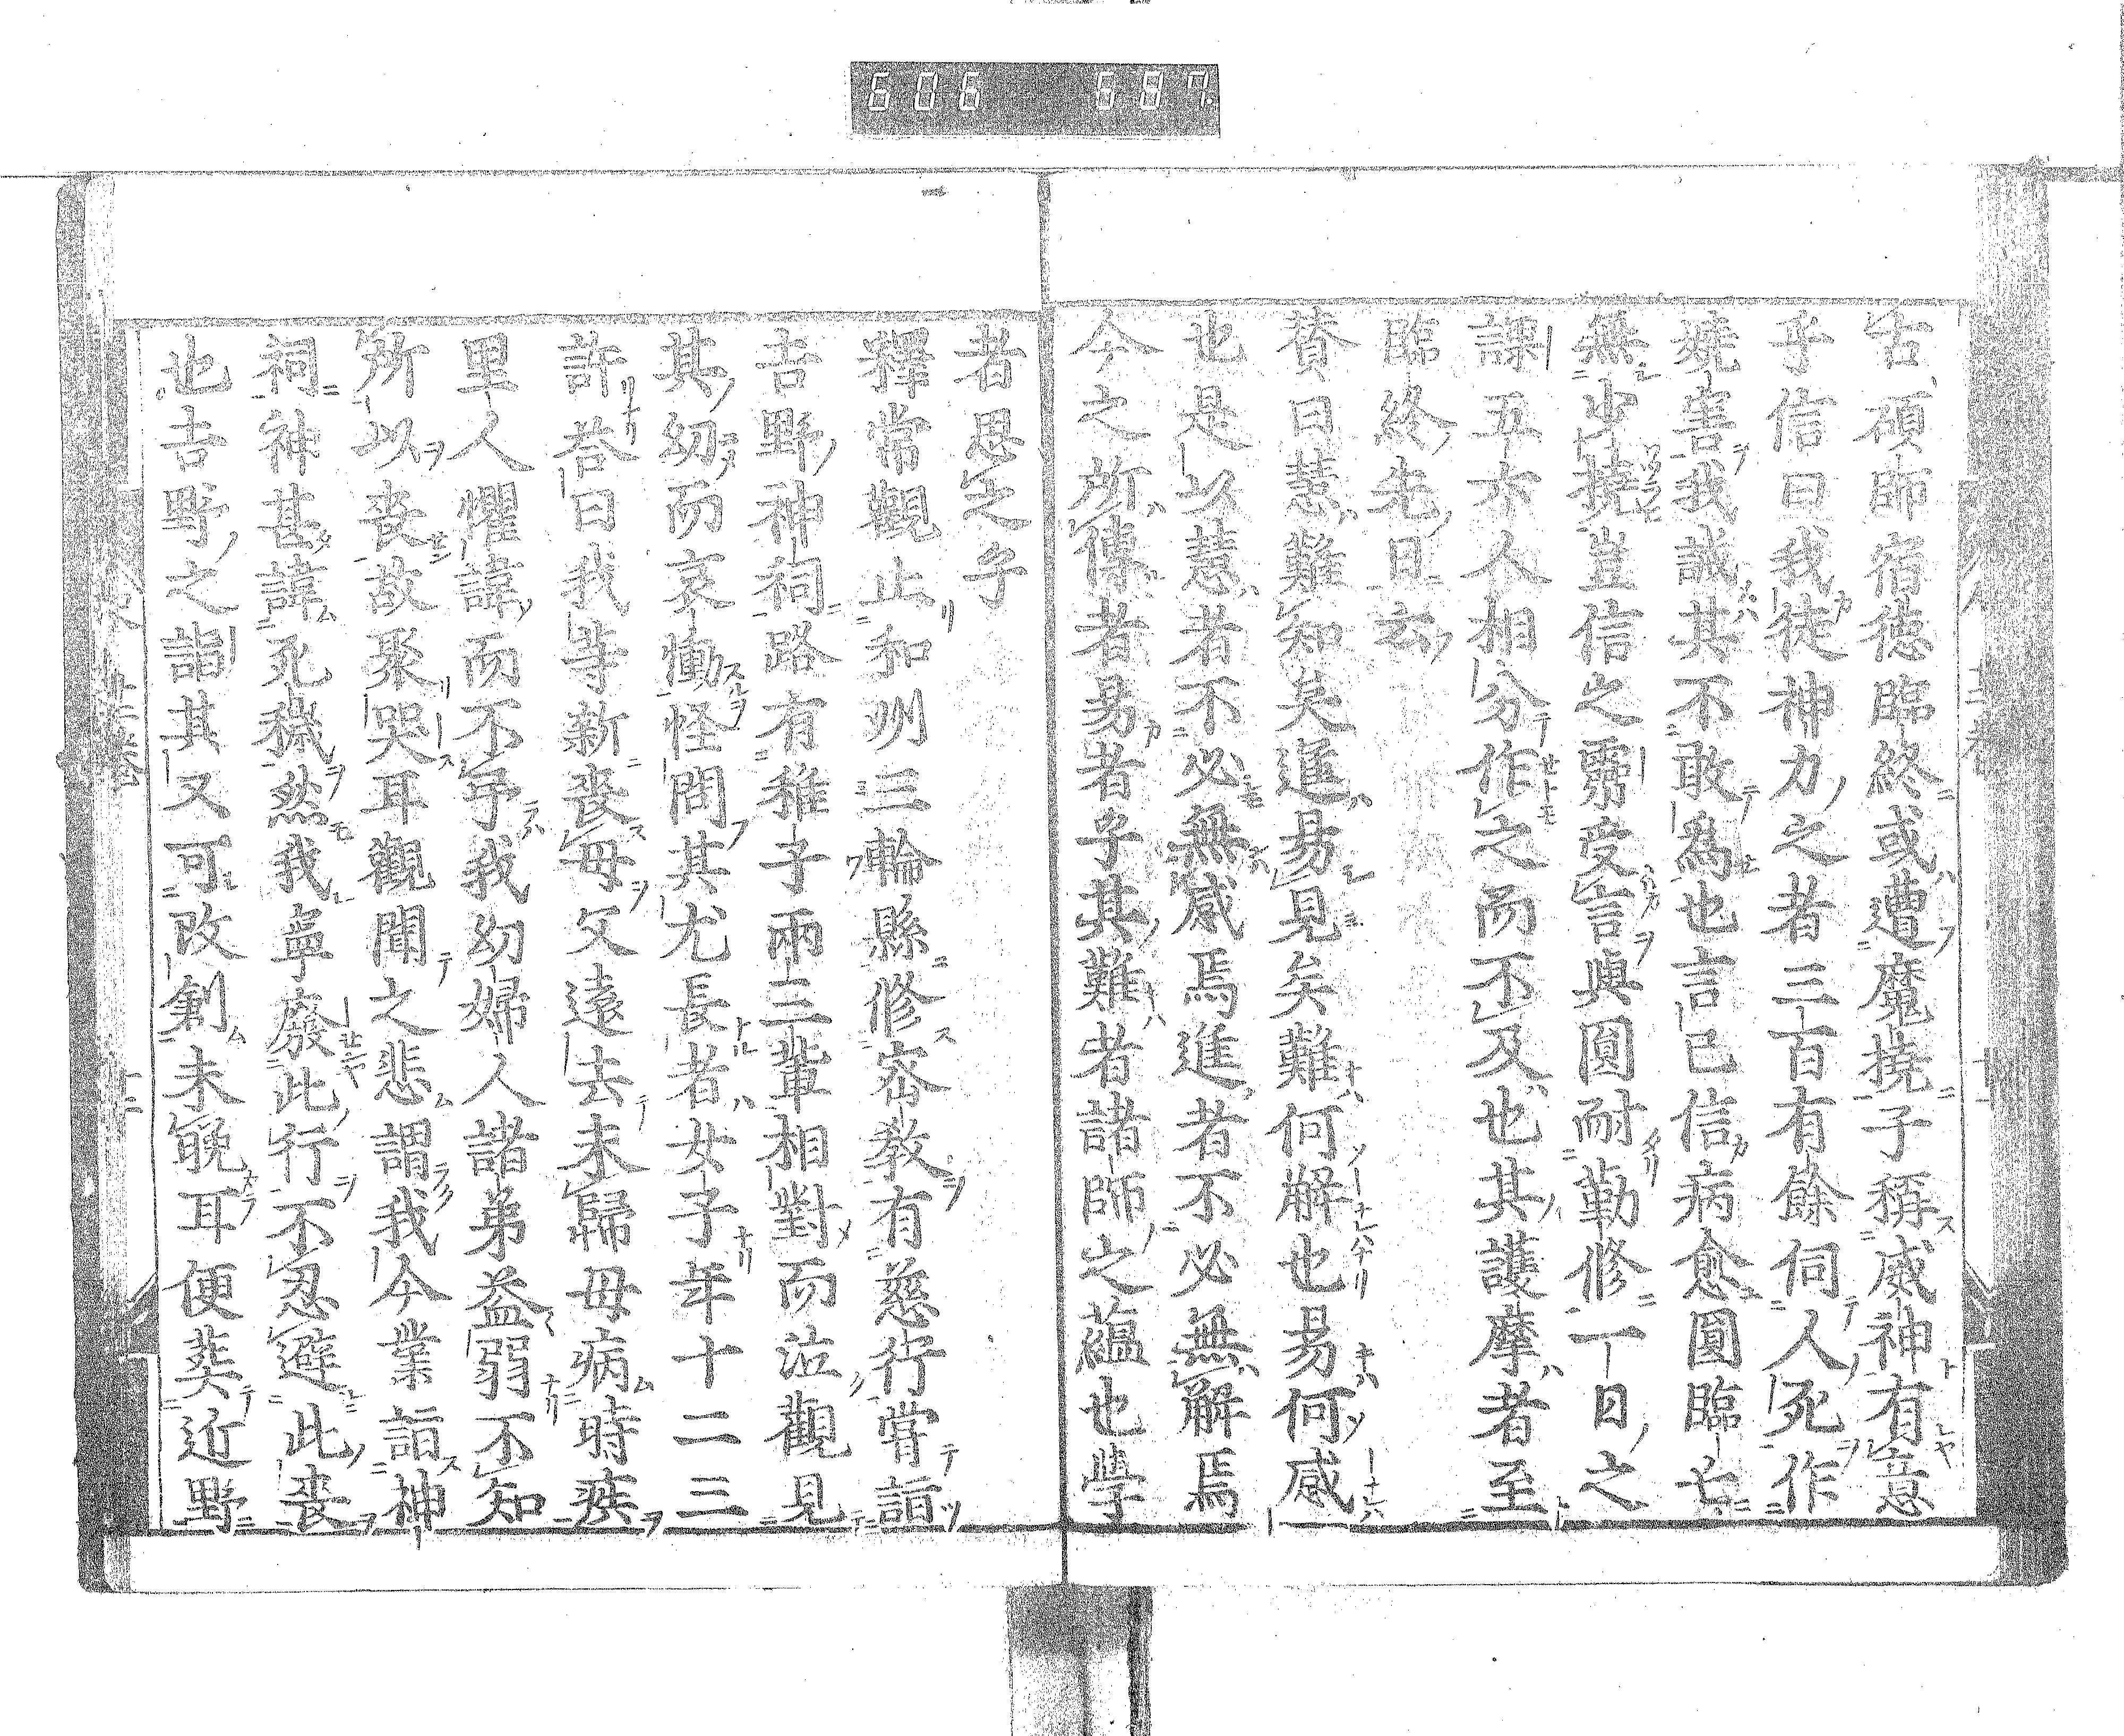 606 687
古碩師宿德臨終或遭魔撓子稱威神有意
乎信曰我徒神力之者三百有餘伺人死作
嬈害我誡其不敢爲也言已信病愈圓臨亡
無少撓豈信之靈受言與圓耐勤修一日之
課五六人相分作之而不及也其護摩者至
臨終先日云
贊曰慧難知矣進易見矣難何解也易何惑
也是以慧者不必無惑焉進者不必無解焉
今之所傳者易者乎其難者諸師之蘊也學
者思之乎
釋常觀止和州三輪縣修密敎有慈行嘗詣
吉野神祠路有稚子兩三輩相對而泣觀見
其幼而哀慟怪問其尤長者女子年十二三
許荅曰我等新喪母父遠去未歸母病時疾
里人懼諱而不予我幼婦人諸弟益弱不知
所以喪故聚哭耳觀聞之悲謂我今業詣神
祠神甚諱死穢然我寧廢此行不忍避此喪
也吉野之詣其又可改創未晩耳便葬近野